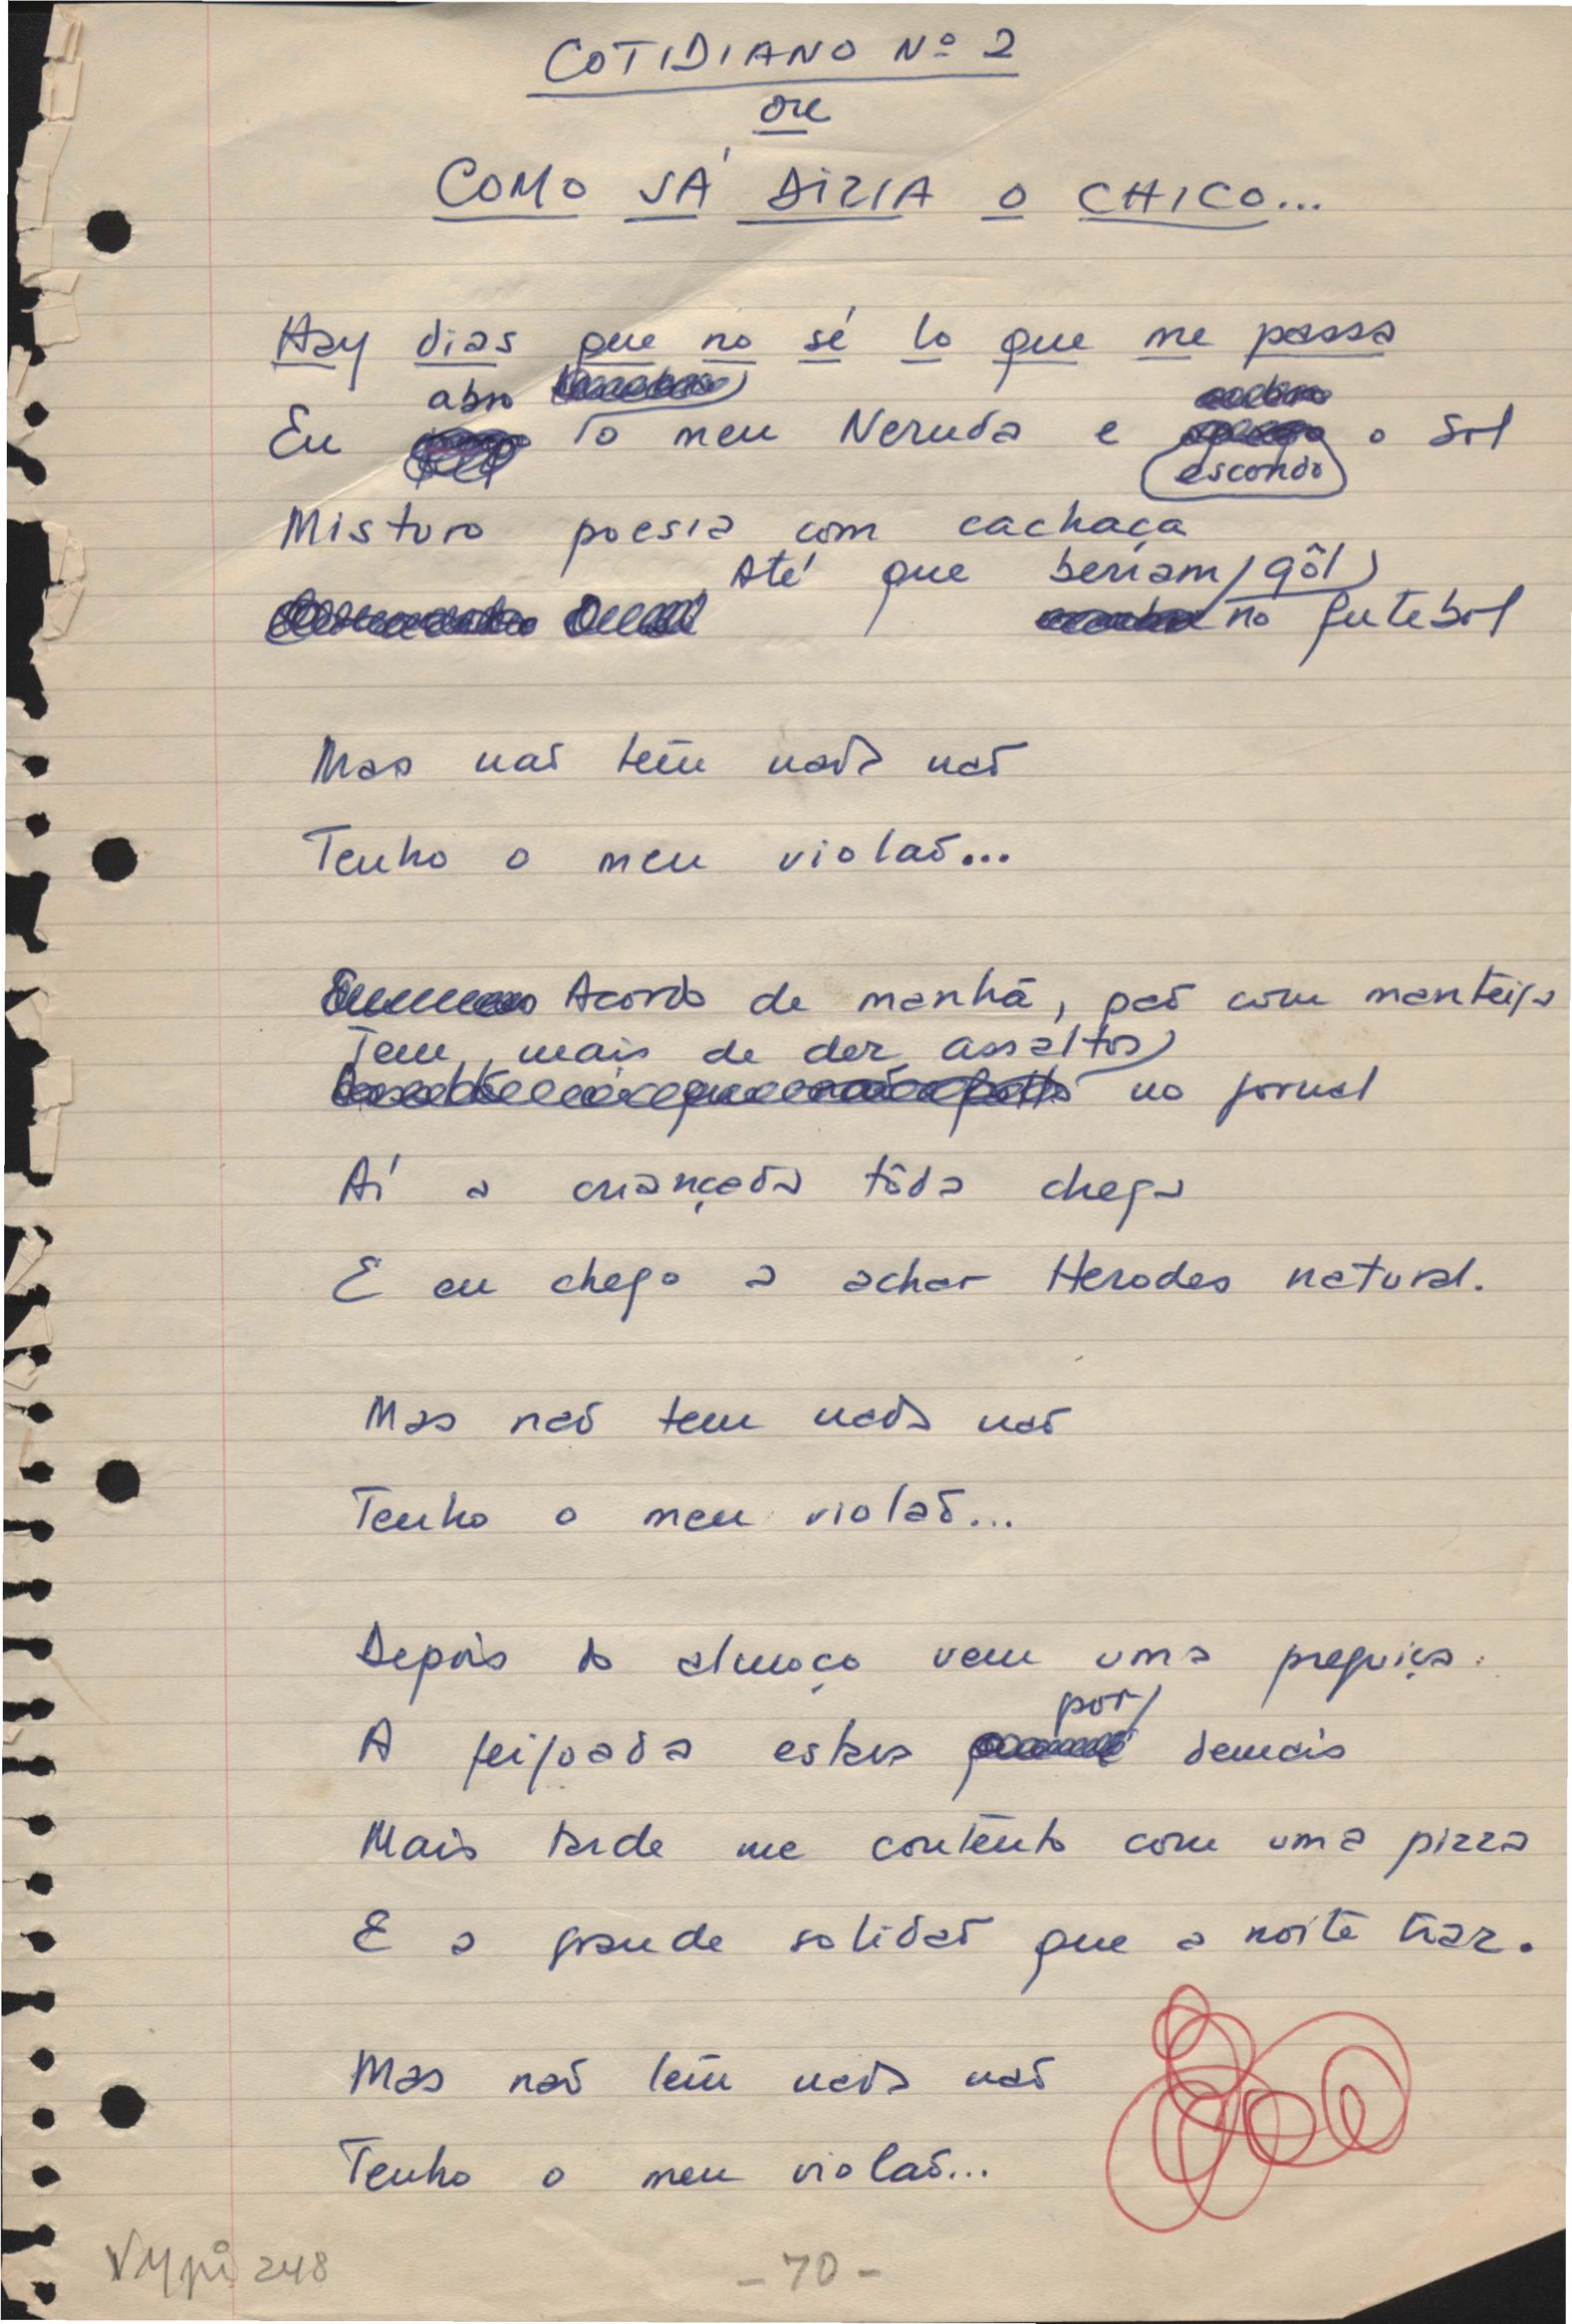 COTIDIANO Nº 2
ou
COMO JÁ DIZIA O CHICO...
Hay dias que no sé lo que me passa
Eu abro o meu Neruda e escondo o sol
Misturo poesia com cachaça
Até que beriam gôl
no futebol
Mas naõ tem nada naõ
Tenho o meu violaõ...
Acordo de manhã, paõ com manteiga
Tem mais de dez assaltos
no jornal
Aí a criançada tôda chega
E eu chego a achar Herodes natural.
Mas naõ tem nada naõ
Tenho o meu violaõ...
Depois do almoço vem uma preguiça.
A feijoada estava por demais
Mais tarde me contento com uma pizza
E a grande solidaõ que a noite traz.
Mas naõ tem nada naõ
Tenho o meu violaõ...
VMpi 248
- 70 -